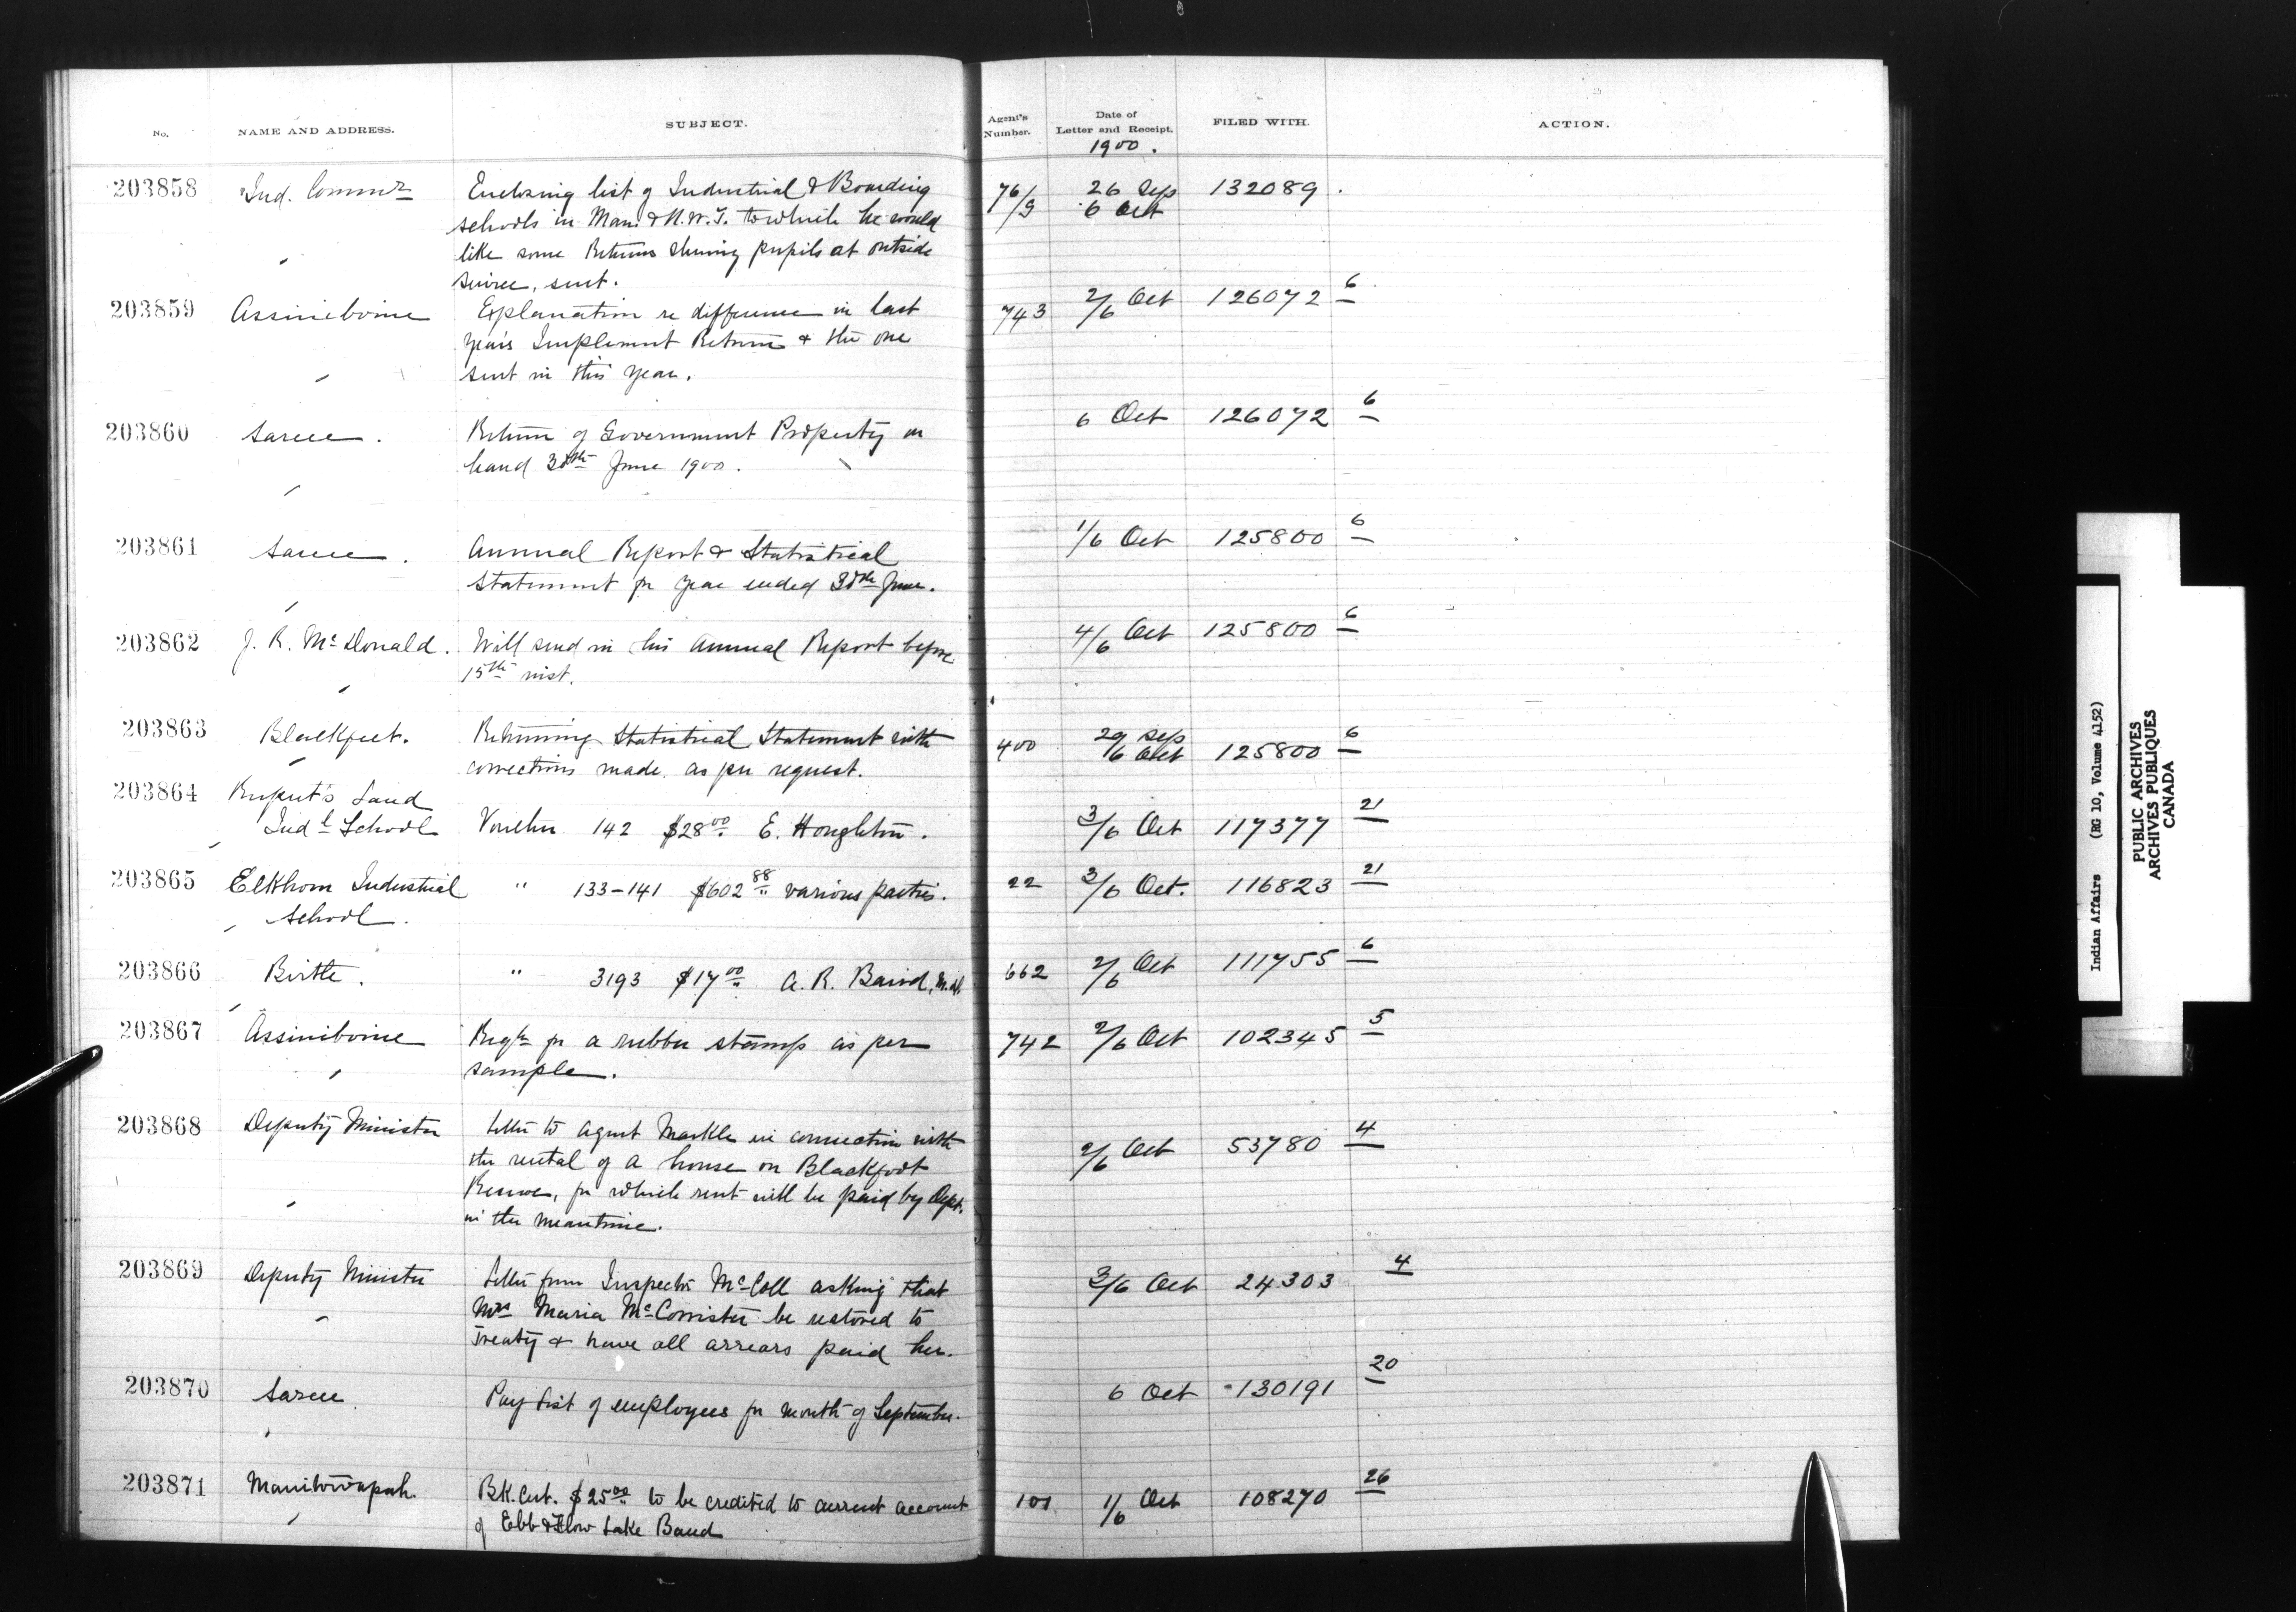 No. NAME AND ADDRESS. SUBJECT. Agent's Number. Date of Letter and Receipt. FILED WITH. ACTION.
1900.
203858 Ind. Commr Enclosing list of Industrial & Boarding 76/9 26 Sep 132089.
schools in Man. & N.W.T. to which he would 6 Oct
like some Returns showing pupils at outside
service, sent.
203859 Assiniboine Explanation re difference in last 743 2/6 Oct 126072 6
year's Implement Return & the one
sent in this year.
203860 Sarcee. Return of Government Property on 6 Oct 126072 6
hand 30th June 1900.
203861 Sarcee. Annual Report & Statistical 1/6 Oct 125800 6
Statement for year ended 30th June.
203862 J. R. McDonald. Will send in his Annual Report before 4/6 Oct 125800 6
15th inst.
203863 Blackfeet. Returning Statistical Statement with 400 29 Sep
corrections made as per request. /6 Oct 125800 6
203864 Rupert's Land
Indl School Voucher 142 $28.00 E. Houghton. 3/6 Oct 117377 21
203865 Elkhorn Industrial " 133-141 $602.88 various parties. 22 3/6 Oct. 116823 21
School.
203866 Birtle. " 3193 $17.00 A. R. Baird, M.D. 662 2/6 Oct 111755 6
203867 Assiniboine Reqn for a rubber stamp as per 742 2/6 Oct 102345 5
sample.
203868 Deputy Minister Letter to Agent Markle in connection with 2/6 Oct 53780 4
the rental of a house on Blackfoot
Reserve, for which rent will be paid by Dept.
in the meantime.
203869 Deputy Minister Letter from Inspector McColl asking that 3/6 Oct 24303 4
Mrs Maria McCorrister be restored to
Treaty & have all arrears paid her.
203870 Sarcee. Pay List of employees for month of September. 6 Oct 130191 20
203871 Manitowapah. Bk. Cert. $25.00 to be credited to current account 101 1/6 Oct 108270 26
of Ebb & Flow Lake Band
Indian Affairs (RG 10, Volume 4152)
PUBLIC ARCHIVES
ARCHIVES PUBLIQUES
CANADA